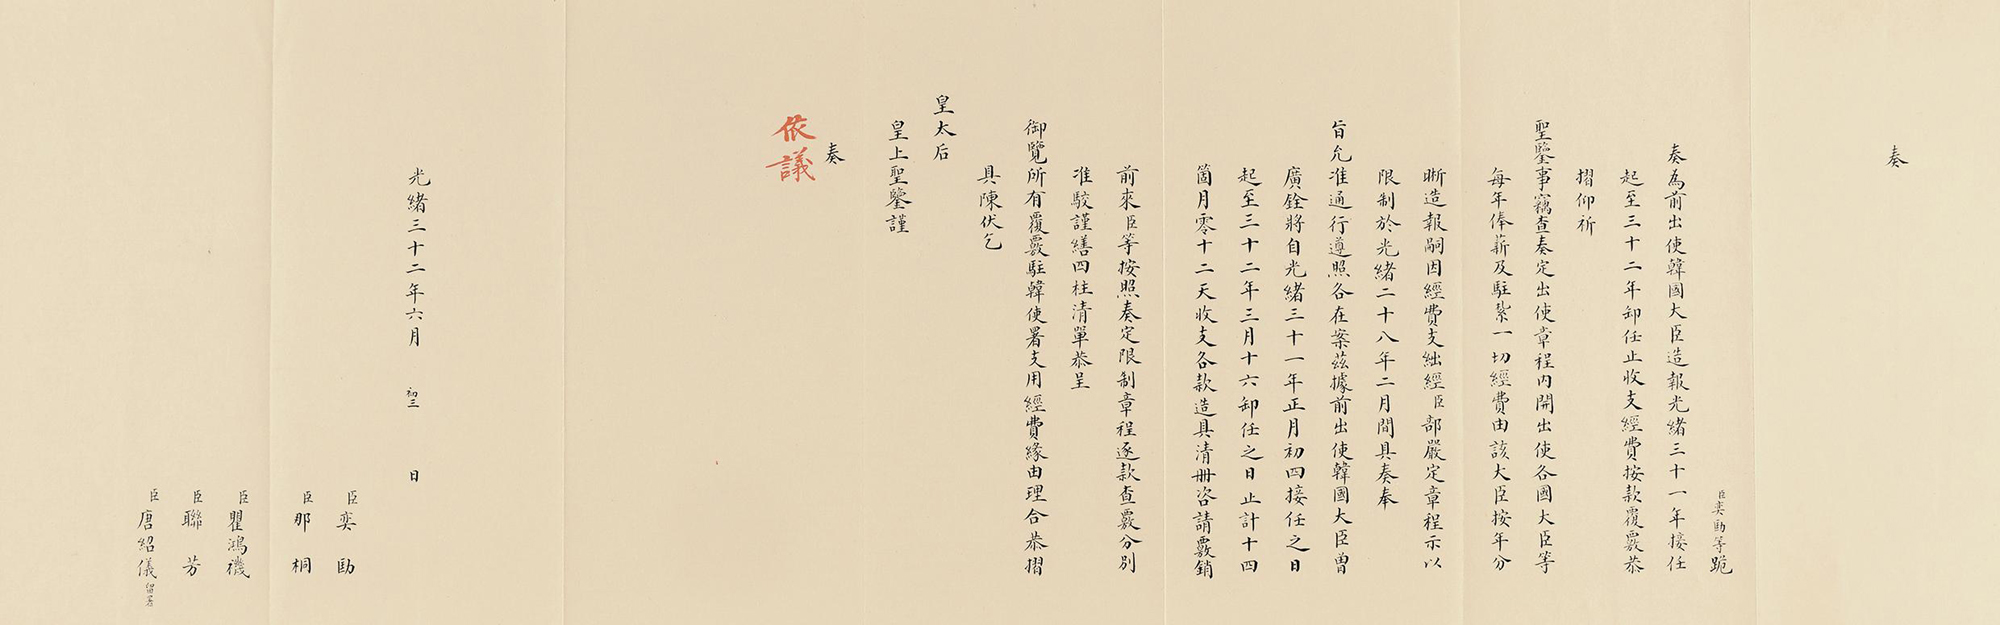 奏
臣奕劻等跪
奏為前出使韓國大臣造報光緒三十一年接任
起至三十二年卸任止收支經費按款覆覈恭
摺仰祈
聖鑒事竊查奏定出使章程內開出使各國大臣等
每年俸薪及駐紮一切經費由該大臣按年分
晰造報嗣因經費支絀經臣部嚴定章程示以
限制於光緒二十八年二月間具奏奉
旨允准通行遵照各在案茲據前出使韓國大臣曾
廣銓將自光緒三十一年正月初四接任之日
起至三十二年三月十六卸任之日止計十四
箇月零十二天收支各款造具清冊咨請覈銷
前來臣等按照奏定限制章程逐款查覈分別
准駮謹繕四柱清單恭呈
御覽所有覆覈駐韓使署支用經費緣由理合恭摺
具陳伏乞
皇太后
皇上聖鑒謹
奏
依議
光緒三十二年六月 初三 日
臣奕劻
臣那桐
臣瞿鴻禨
臣聯芳
臣唐紹儀留署